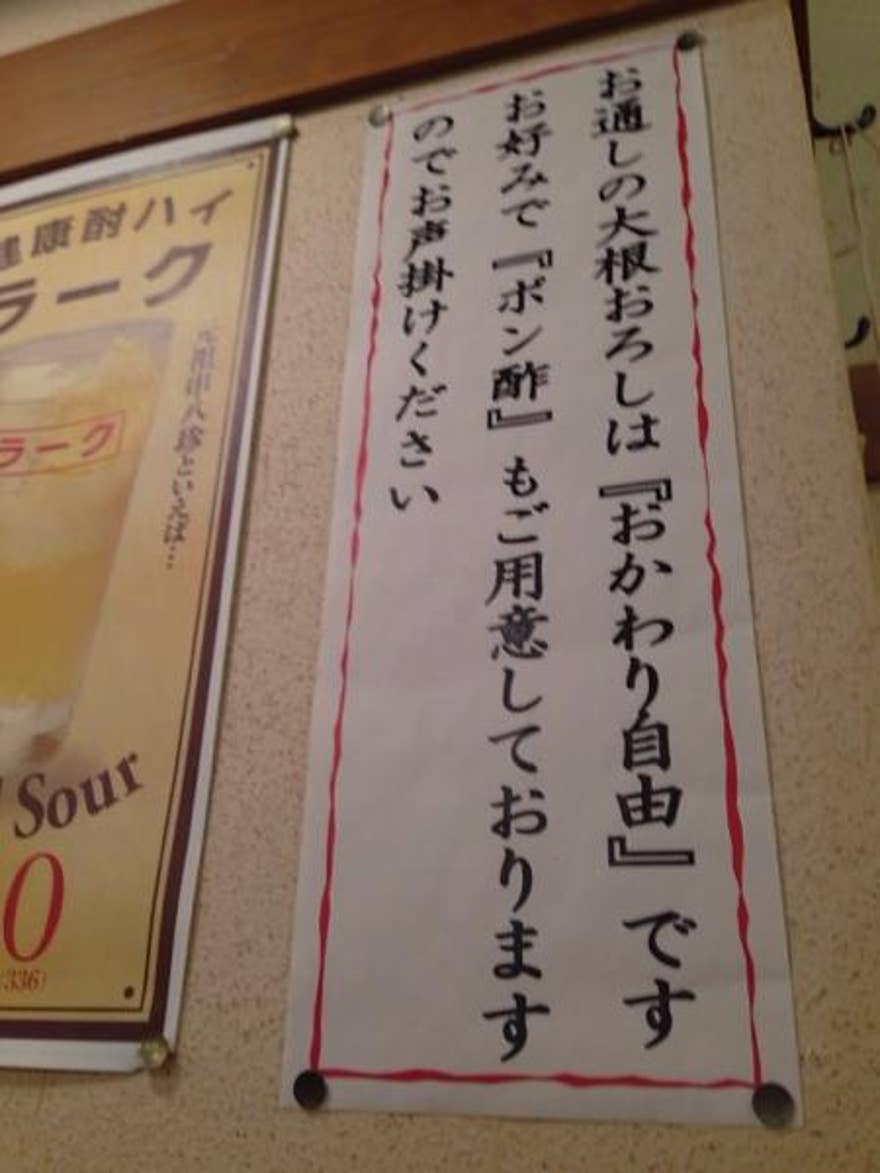 お通しの大根おろしは『おかわり自由』です
お好みで『ポン酢』もご用意しております
のでお声掛けください
健康酎ハイ
ラーク
元祖串八珍といえば…
ラーク
Sour
0
336)